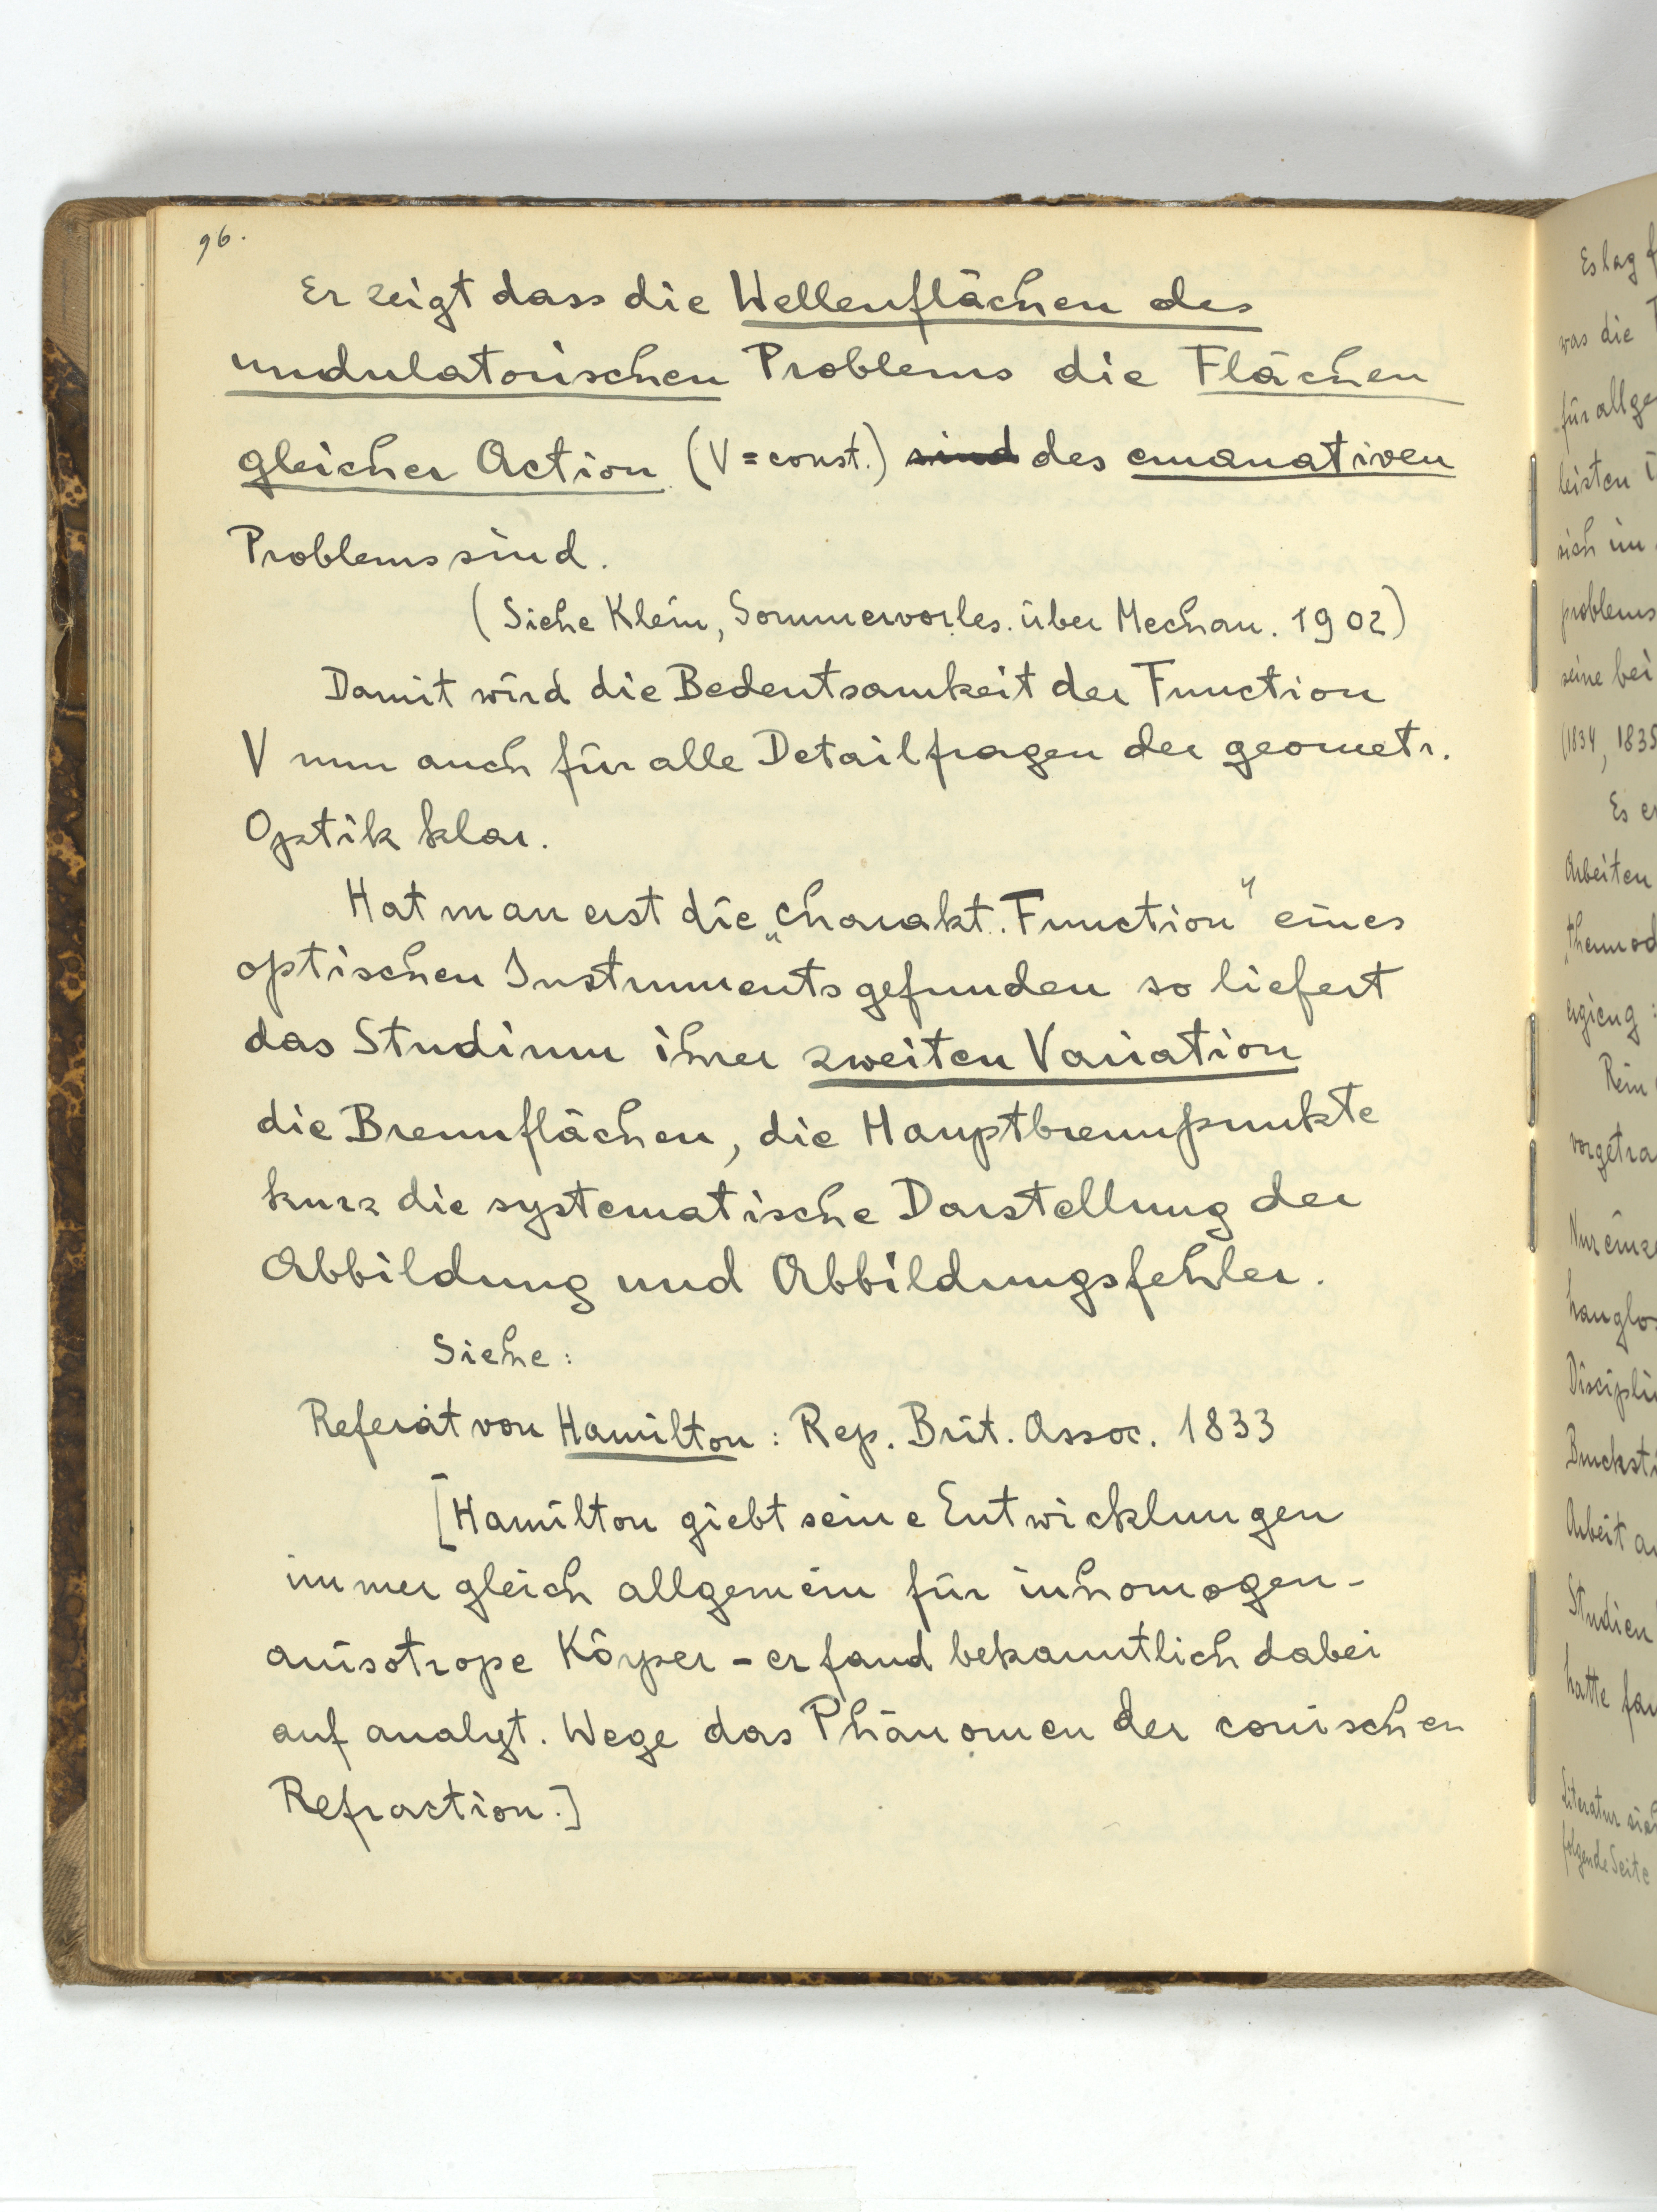 96.
Er zeigt dass die Wellenflächen des
undulatorischen Problems die Flächen
gleicher Action (V = const.) sind des emanativen
Problems sind.
(Siehe Klein, Sommervorles. über Mechan. 1902)
Damit wird die Bedeutsamkeit der Function
V nun auch für alle Detailfragen der geometr.
Optik klar.
Hat man erst die „charakt. Function" eines
optischen Instruments gefunden so liefert
das Studium ihrer zweiten Variation
die Brennflächen, die Hauptbrennpunkte
kurz die systematische Darstellung der
Abbildung und Abbildungsfehler.
Siehe:
Referat von Hamilton: Rep. Brit. Assoc. 1833
[Hamilton giebt seine Entwicklungen
immer gleich allgemein für inhomogen-
anisotrope Körper - er fand bekanntlich dabei
auf analyt. Wege das Phänomen der conischen
Refraction.]
Es lag
was die
für allge
leisten
sich im
problems
seine bei
(1834, 1835
Es
Arbeiten
ergieng :
Rein
vorgetra
Nur einze
hanglos
Disciplin
Bruckst
Arbeit
Studien
hatte
Literatur
folgende Seite